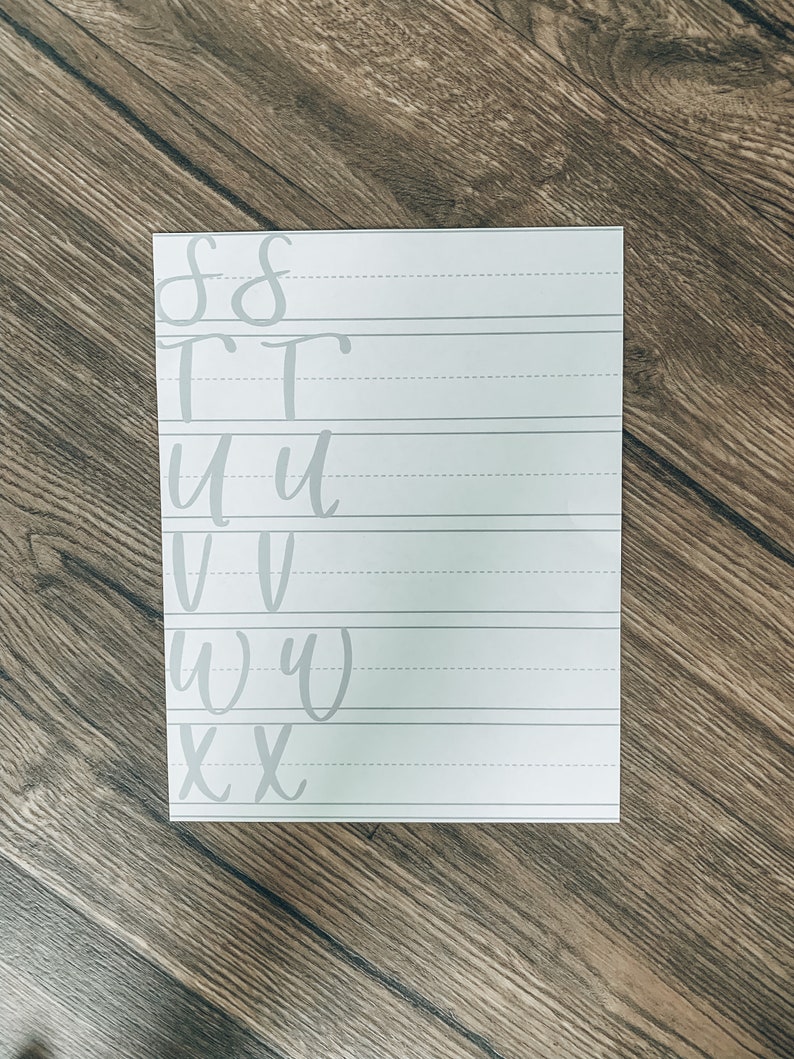 S S
T T
U U
V V
W W
X X